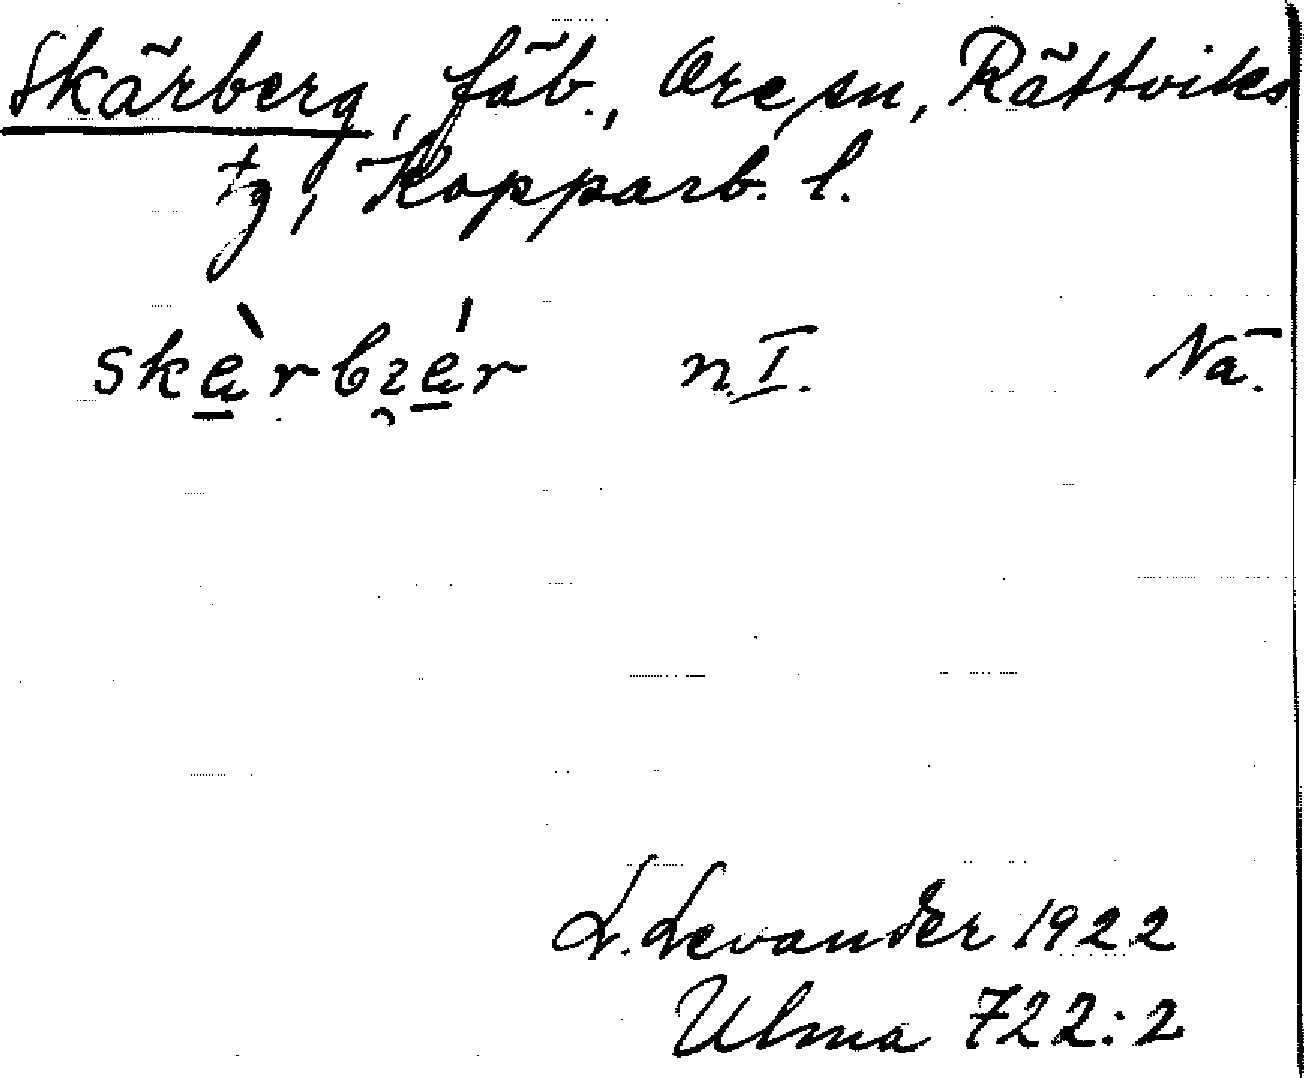 Skärberg, fäb., Ore sn, Rättviks
tg, Kopparb. l.
n. I. Nä.
L. Levander 1922
Ulma 722:2